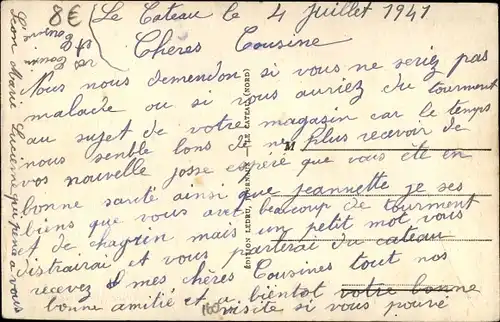 8€
Le Cateau le 4 Juillet 1941
Chères Cousine
Nous nous demendon si vous ne seriez pas
malade ou si vous auriez du tourment
au sujet de votre magasin car le temps
nous semble lons de ne plus recevoir de
vos nouvelle josse espéré que vous ête en
bonne santé ainsi que jeannette je ses
biens que vous avet beaucoup de tourment
et de chagrin mais un petit mot vous
distrairai et vous parlerai du cateau
recevez mes chères Cousines tout nos
bonne amitié et a bientot votre bonne
visite si vous pouvé
Léon Marie Lucienne qui pense a vous
vos
Cousin
M
ÉDITION LEDRU, LE CATEAU (NORD)